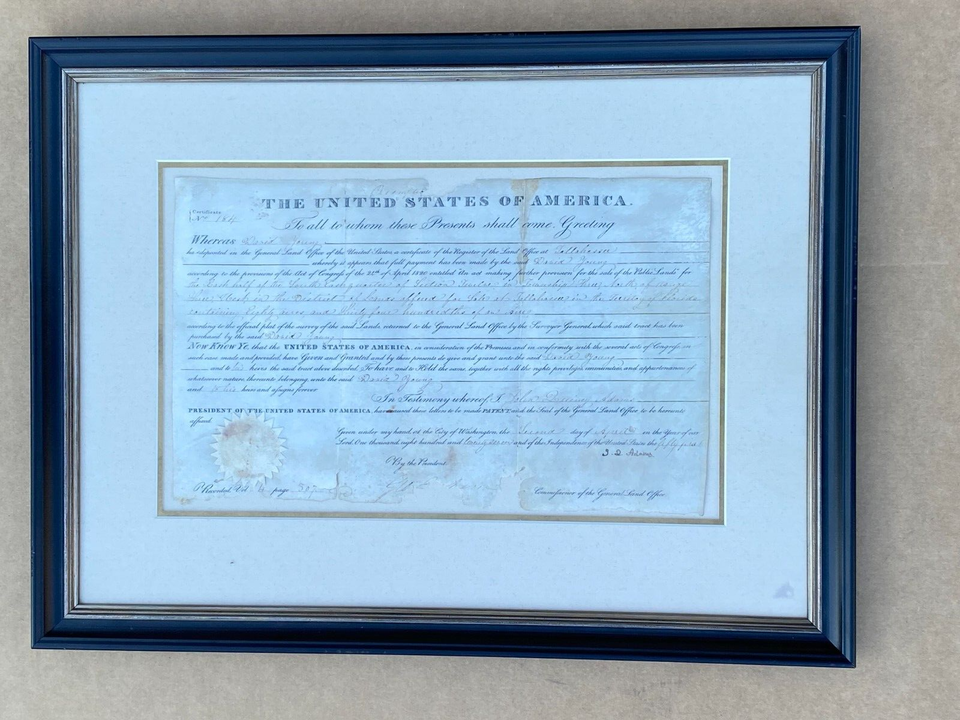 THE UNITED STATES OF AMERICA.
Certificate
No.
To all to whom these Presents shall come Greeting
Whereas David Young
ha deposited in the General Land Office of the United States a certificate of the Register of the Land Office at Tallahassee
whereby it appears that full payment has been made by the said David Young
according to the provisions of the Act of Congress of the 24th of April 1820 entitled "An act making further provision for the sale of the Public Lands" for
the East half of the South east quarter of Section twelve in Township three north of range
in the District of Lands offered for Sale at Tallahassee in the Territory of Florida
containing eighty acres and thirty four hundredths of an acre
according to the official plat of the survey of the said Lands returned to the General Land Office by the Surveyor General, which said tract has been
purchased by the said David Young
Now Know Ye that the UNITED STATES OF AMERICA, in consideration of the Premises and in conformity with the several acts of Congress in
such case made and provided have Given and Granted and by these presents do give and grant unto the said David Young
and to his heirs the said tract above described To have and to Hold the same, together with all the rights privileges immunities and appurtenances of
whatsoever nature thereunto belonging unto the said David Young
and to his heirs and assigns forever
In Testimony whereof I John Quincy Adams
PRESIDENT OF THE UNITED STATES OF AMERICA, have caused these letters to be made PATENT and the Seal of the General Land Office to be hereunto
affixed.
Given under my hand, at the City of Washington, the Second day of in the Year of our
Lord One thousand eight hundred and and of the Independence of the United States the
J. Q. Adams
By the President
Recorded Vol page Commissioner of the General Land Office